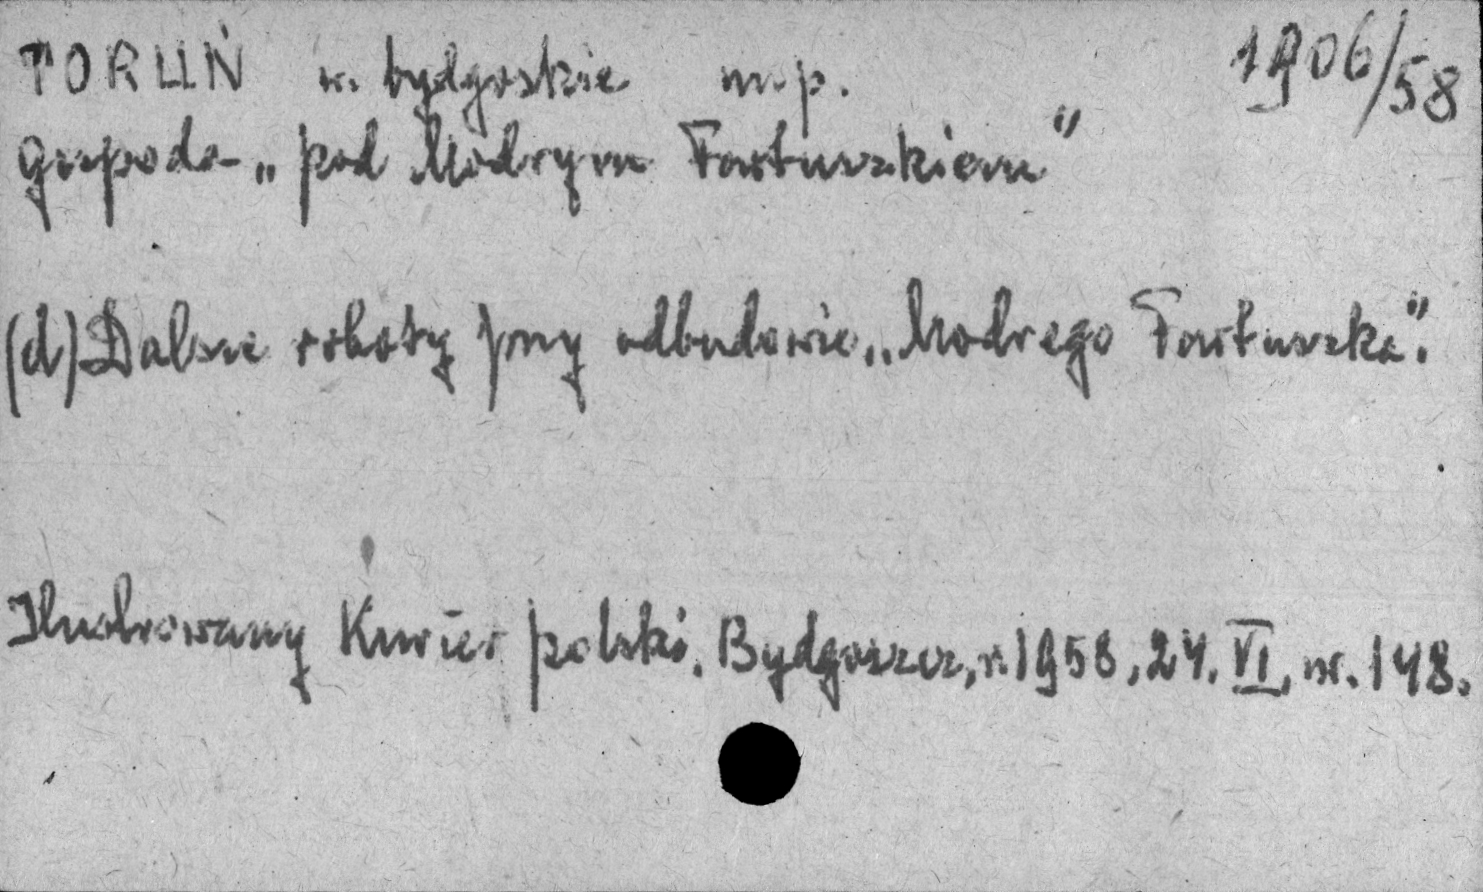 TORUŃ w. bydgoskie m.p. 1906/58
Gospoda „pod Modrym Fartuszkiem"
(d) Dalsze roboty przy odbudowie „Modrego Fartuszka".
Ilustrowany Kurier polski. Bydgoszcz, r. 1958, 24. VI, nr. 148.